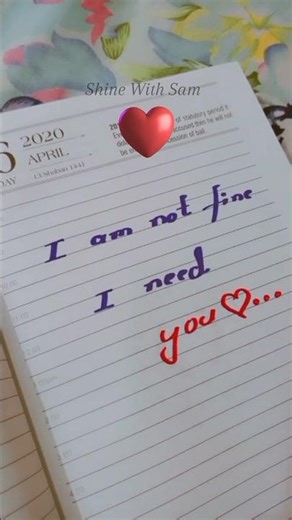 Shine With Sam
2020
APRIL
13 Shaban 1441
DAY
of statutory period it
accused then he will not
be
cession of bail.
I am not fine
I need
you♡...